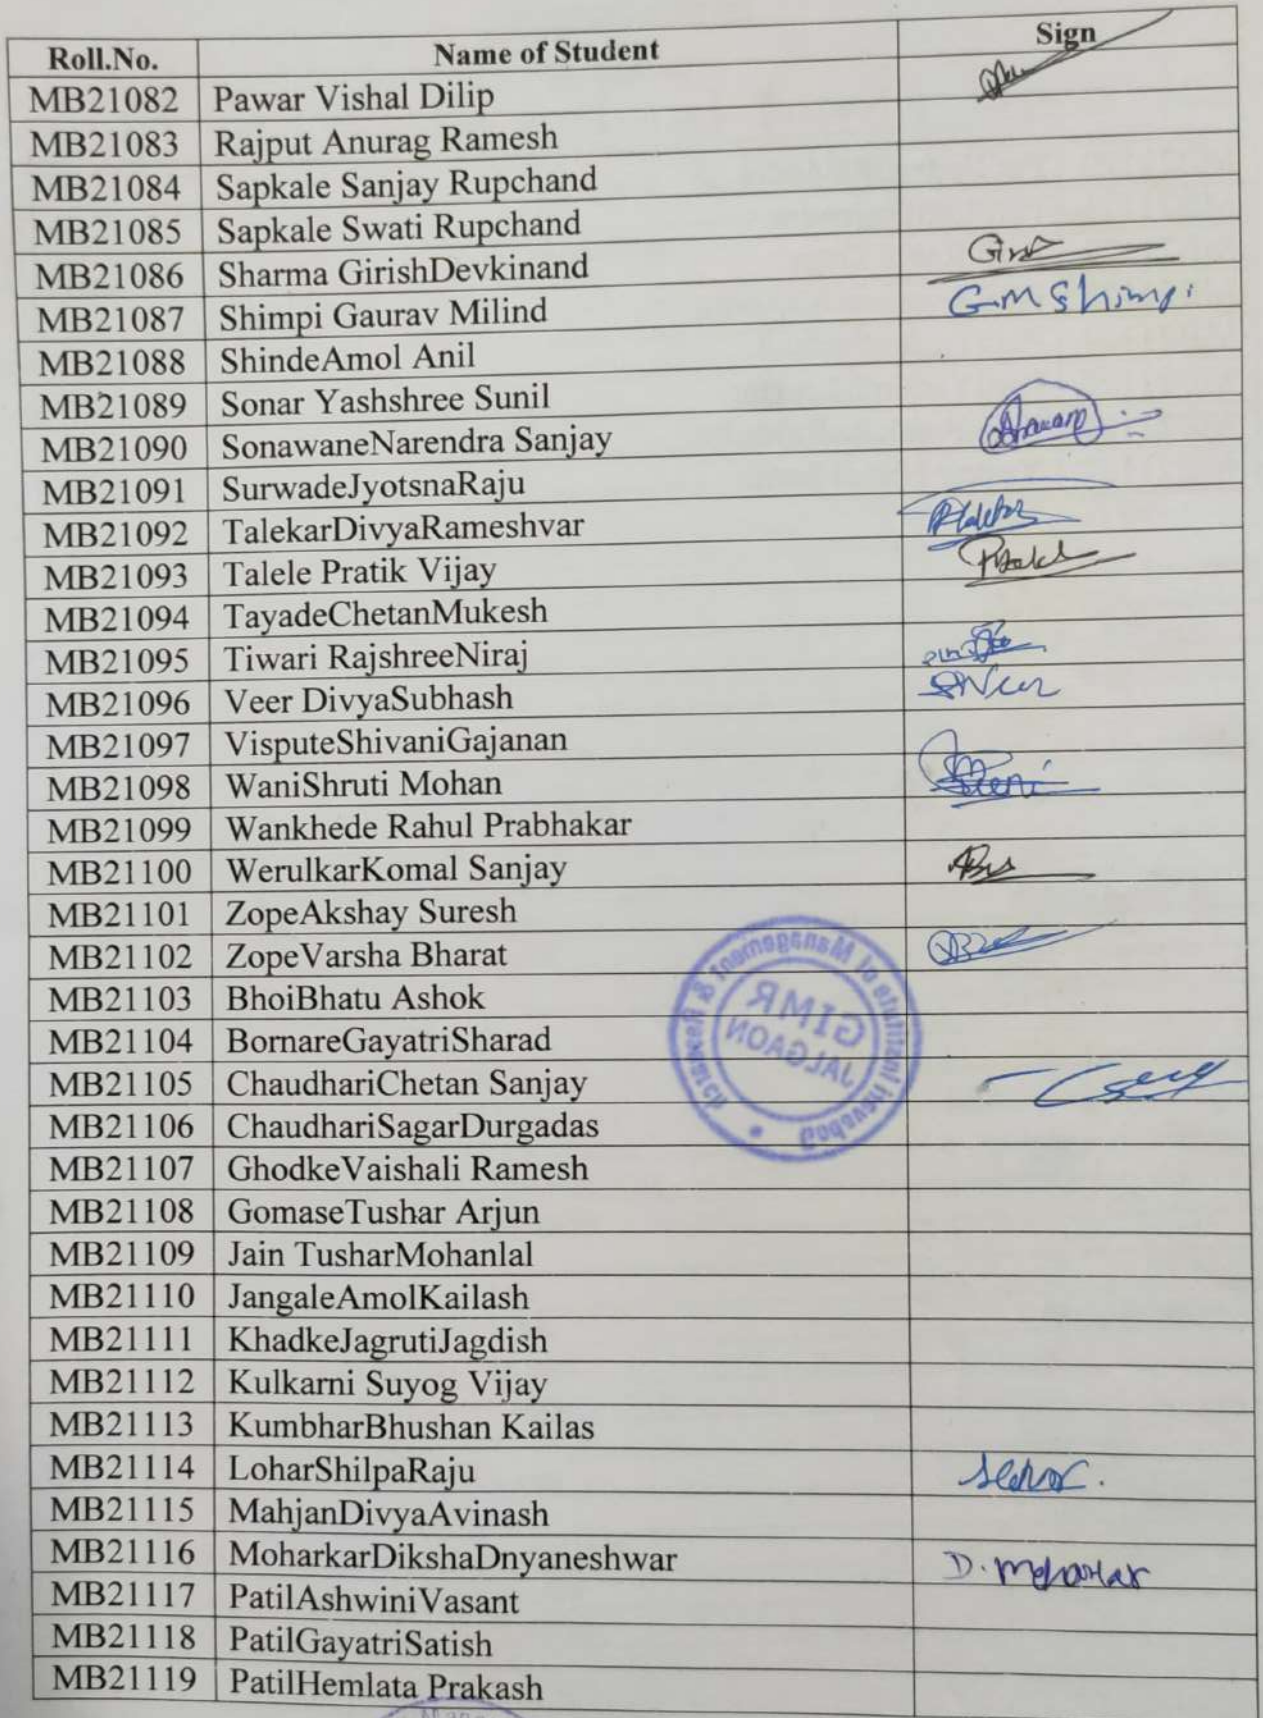 Roll.No. Name of Student Sign
MB21082 Pawar Vishal Dilip
MB21083 Rajput Anurag Ramesh
MB21084 Sapkale Sanjay Rupchand
MB21085 Sapkale Swati Rupchand
MB21086 Sharma GirishDevkinand
MB21087 Shimpi Gaurav Milind GMShimpi
MB21088 ShindeAmol Anil
MB21089 Sonar Yashshree Sunil
MB21090 SonawaneNarendra Sanjay
MB21091 SurwadeJyotsnaRaju
MB21092 TalekarDivyaRameshvar
MB21093 Talele Pratik Vijay
MB21094 TayadeChetanMukesh
MB21095 Tiwari RajshreeNiraj
MB21096 Veer DivyaSubhash
MB21097 VisputeShivaniGajanan
MB21098 WaniShruti Mohan
MB21099 Wankhede Rahul Prabhakar
MB21100 WerulkarKomal Sanjay
MB21101 ZopeAkshay Suresh
MB21102 ZopeVarsha Bharat
MB21103 BhoiBhatu Ashok
MB21104 BornareGayatriSharad
MB21105 ChaudhariChetan Sanjay
MB21106 ChaudhariSagarDurgadas
Godavari Institute of Management & Research
GIMR
JALGAON
MB21107 GhodkeVaishali Ramesh
MB21108 GomaseTushar Arjun
MB21109 Jain TusharMohanlal
MB21110 JangaleAmolKailash
MB21111 KhadkeJagrutiJagdish
MB21112 Kulkarni Suyog Vijay
MB21113 KumbharBhushan Kailas
MB21114 LoharShilpaRaju
MB21115 MahjanDivyaAvinash
MB21116 MoharkarDikshaDnyaneshwar D. Moharkar
MB21117 PatilAshwiniVasant
MB21118 PatilGayatriSatish
MB21119 PatilHemlata Prakash